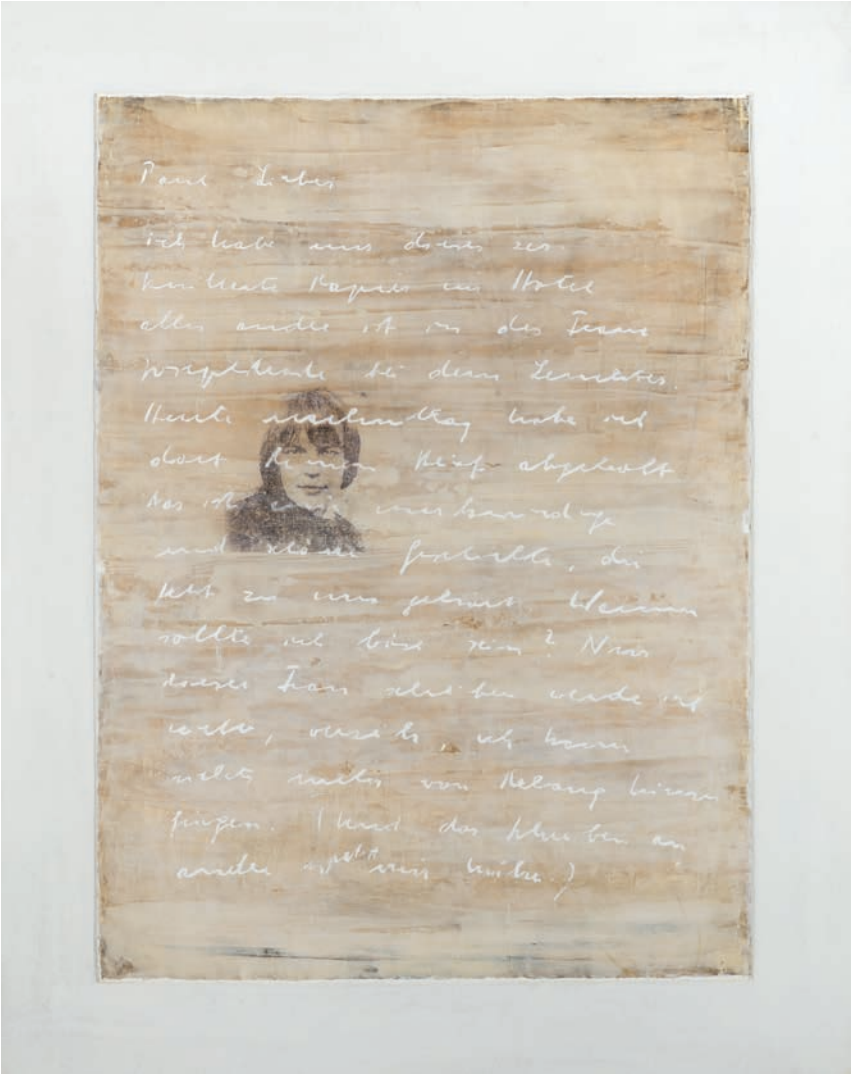 Paul Lieber
ich habe nur dieses zer-
knitterte Papier im Hotel
alles andre ist in der Franz
Josephstraße bei dem Leuchter.
Heute nachmittag habe ich
dort deinen Brief abgeholt
Das ist eine merkwürdige
und schöne Geschichte, die
jetzt zu uns gehört. Warum
sollte ich böse sein? Nur
dieser Frau schreiben werde ich
nicht, verzeih, ich kann
nichts mehr von Belang hinzu
fügen. (Und das Schreiben an
andre ist jetzt